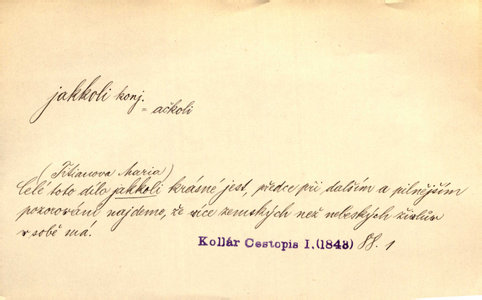 jakkoli konj.
= ačkoli
(Titianova Maria)
Celé toto dílo jakkoli krásné jest, předce při dalším a pilnějším
pozorování najdeme, že více zemských než nebeských živlův
v sobě má.
Kollár Cestopis I.(1843) 88. 1